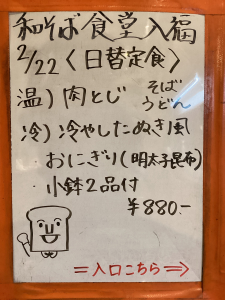 和そば食堂入福
2/22〈日替定食〉
温)肉とじ そば
うどん
冷)冷やしたぬき風
・おにぎり(明太子昆布)
・小鉢2品付
¥880.-
=入口こちら=>